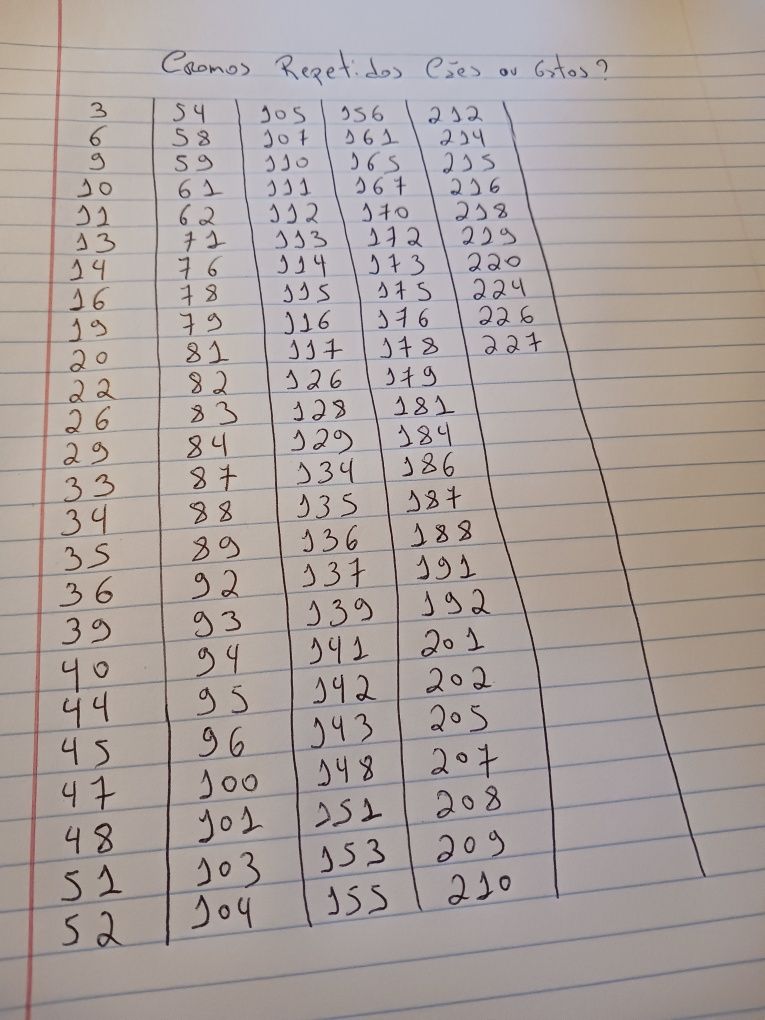 Cromos Repetidos Cães ou Gatos?
3 54 105 156 212
6 58 107 161 214
9 59 110 165 215
10 61 111 167 216
11 62 112 170 218
13 71 113 172 219
14 76 114 173 220
16 78 115 175 224
19 79 116 176 226
20 81 117 178 227
22 82 126 179
26 83 128 181
29 84 129 184
33 87 134 186
34 88 135 187
35 89 136 188
36 92 137 191
39 93 139 192
40 94 141 201
44 95 142 202
45 96 143 205
47 100 148 207
48 101 151 208
51 103 153 209
52 104 155 210